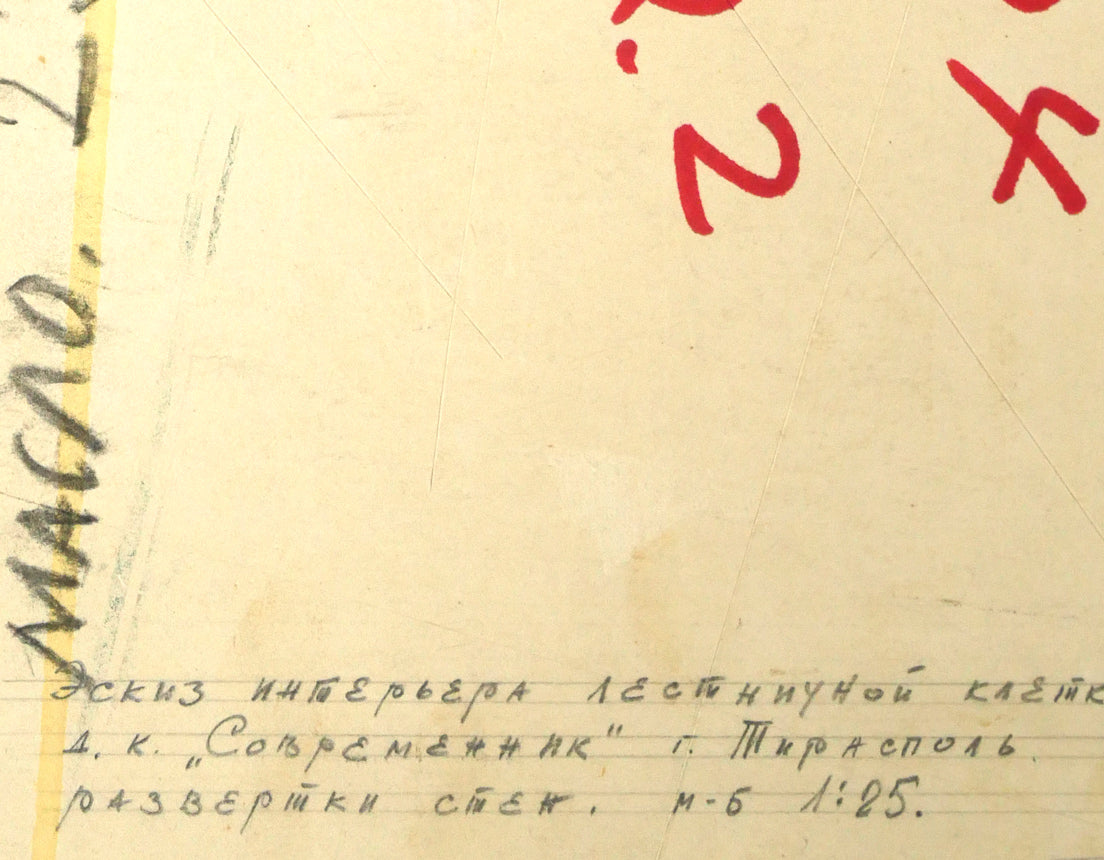 МАСЛО. 2
2
4
Эскиз интерьера лестничной клетк
д. к. „Современник" г. Тирасполь.
развертки стен. м-б 1:25.